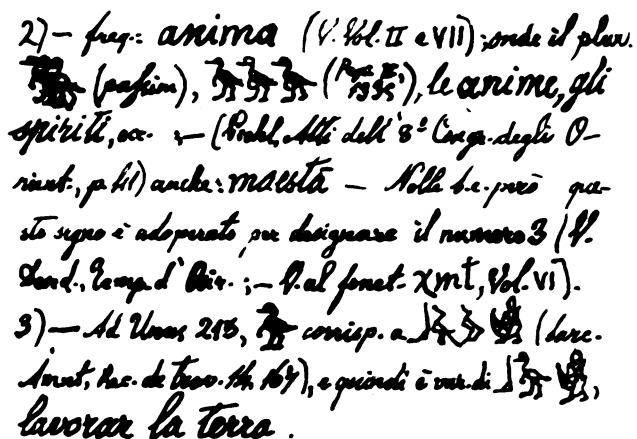 2) — freq.: anima (V. Vol. II e VII); onde il plur.
(passim), le anime, gli
spiriti, ecc. ;— (Piehl, Atti dell' 8º Congr. degli O-
rient., p. ) anche: maestà — Nelle b.e. però que-
sto segno è adoperato per designare il numero 3 (V.
Temp. d' ;— V. al fonet. χmt, Vol. VI).
3) — Ad Unas 213, corrisp. a
Rec. de trav. 14, 167), e quindi è var. di ,
lavorar la terra.